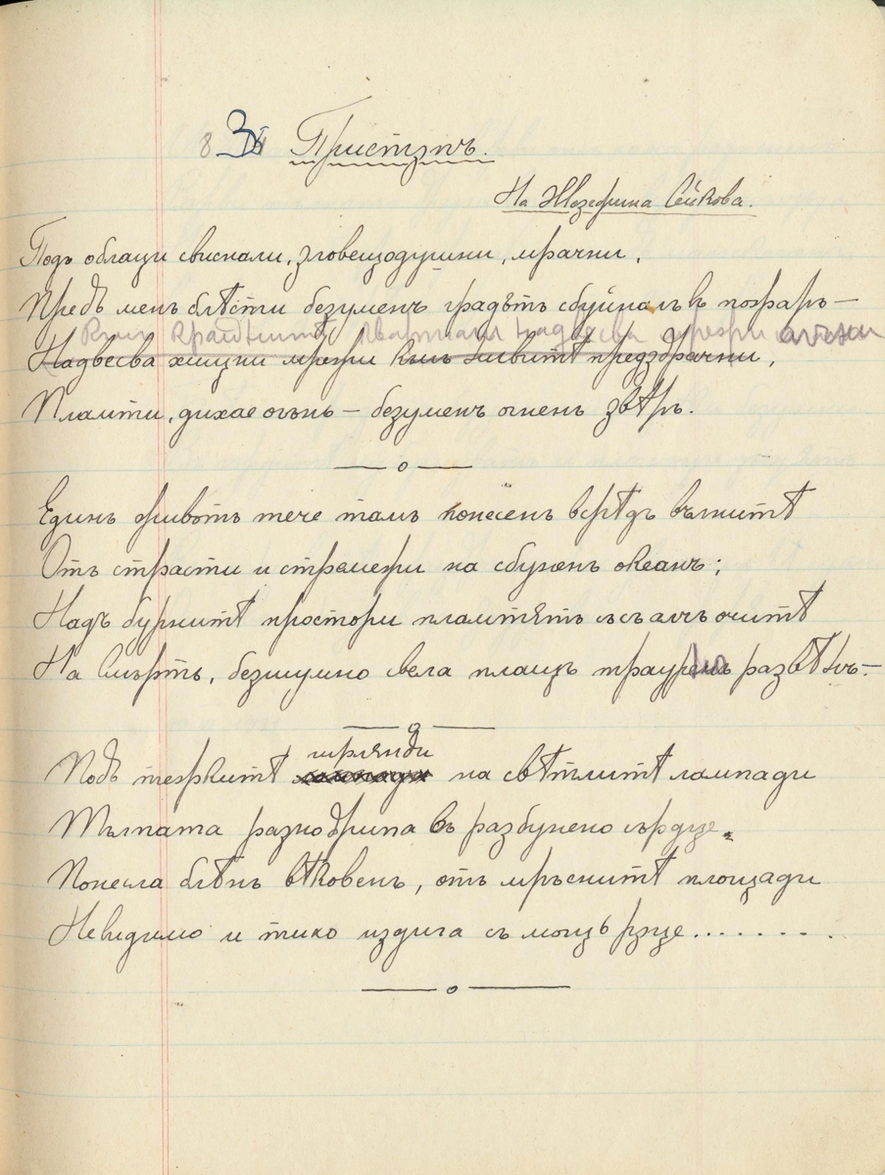 8 3 Пристѫпъ.
На Жозефина Сейкова.
Подъ облаци свиснали, зловещодушни, мрачни,
Предъ менъ блѣсти безуменъ градътъ сбуйналъ в пожаръ —
Към крайнитѣ квартали надвесва мрежи
Надвесва хищни мрежи към нивитѣ предздрачни,
Пламти, дихае огънь — безуменъ огненъ звѣръ.
— о —
Единъ животъ тече тамъ понесенъ всрѣдъ вълнитѣ
Отъ страсти и стремежи на сбуненъ океанъ;
Надъ бурнитѣ простори пламтятъ съсъ алчъ очитѣ
На Смърть, безшумно свела плащъ трауренъ развѣянъ. —
— о —
гирлянди
Подъ тежкитѣ на свѣтлитѣ лампади
Тълпата разнодрипа въ разбунено сърдце
Понесла блѣнъ вѣковенъ, отъ мръснитѣ площади
Невидимо и тихо издига съ мощь рѫце........
— о —